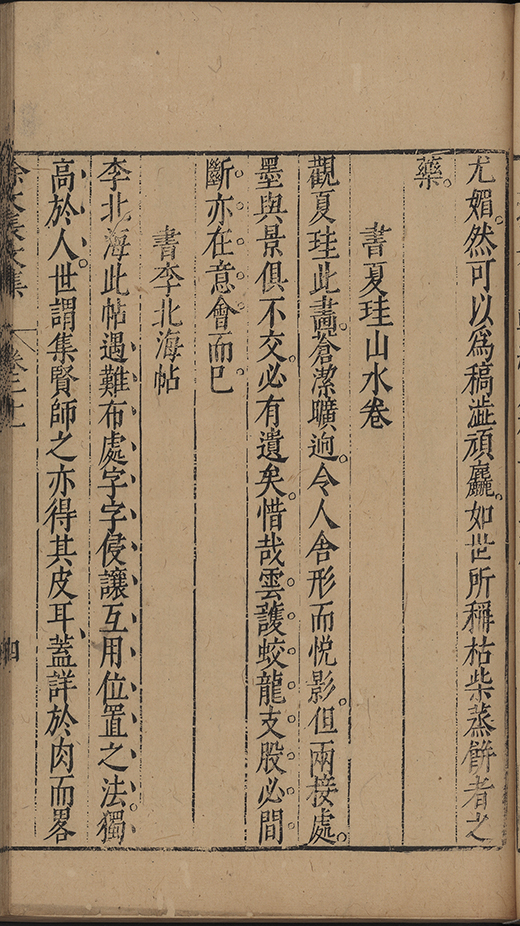 尤媚。然可以爲稿澁頑麤。如世所稱枯柴蒸餅者之
藥。
書夏珪山水卷
觀夏珪此畫。蒼潔曠逈。令人舍形而悅影。但兩接處。
墨與景俱不交。必有遺矣。惜哉。雲護蛟龍。支股必間
斷。亦在意會而巳。
書李北海帖
李北海此帖。遇難布處。字字侵讓。互用位置之法。獨
高於人。世謂集賢師之。亦得其皮耳。蓋詳於肉而畧
徐文長文集
卷二十一
四